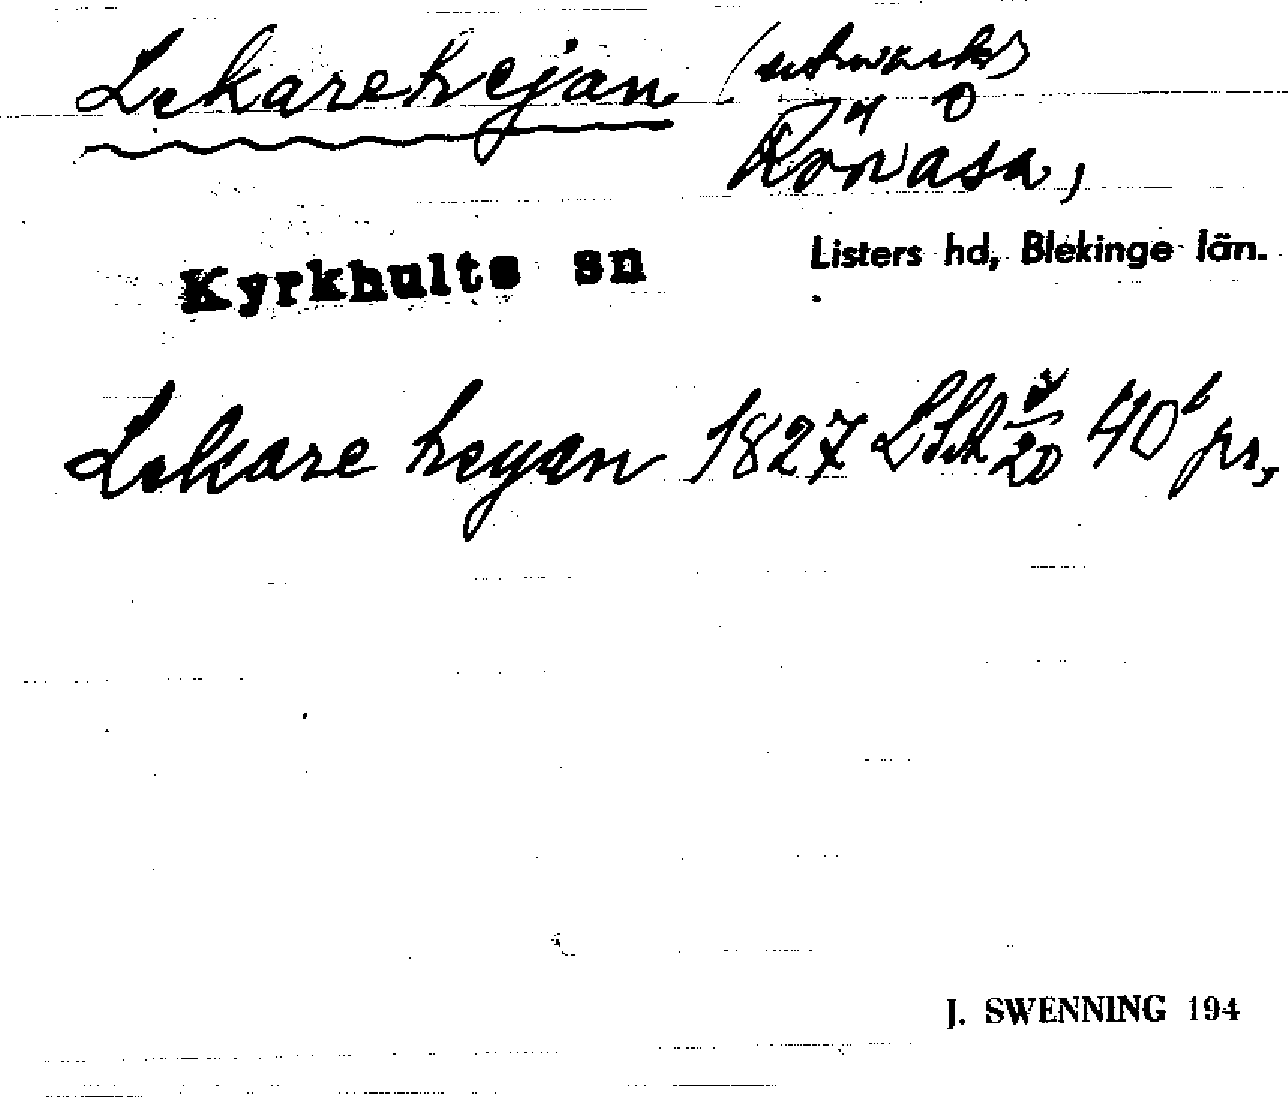 Lekarehejan (utmark)
Rönåsa,
Kyrkhults sn Listers hd, Blekinge län.
Lekare heyan 1827 LSk V/20 40 b pr,
J. SWENNING 194